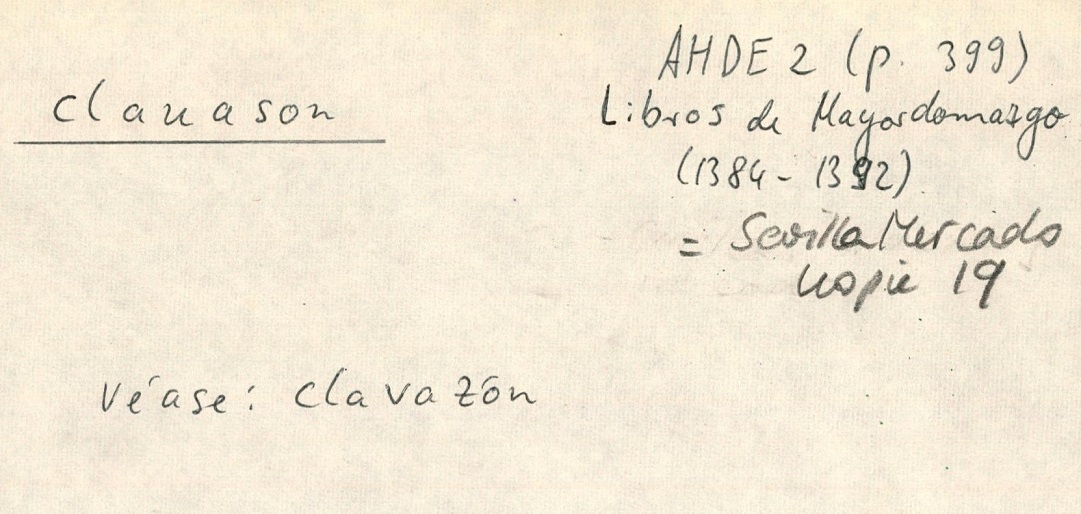 clauason
AHDE 2 (p. 399)
Libros de Mayordomazgo
(1384 - 1392)
= Sevilla Mercado
Kopie 19
Véase: clavazón